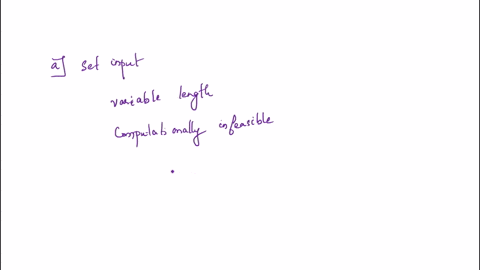 a] set input
variable length
Computationally infeasible